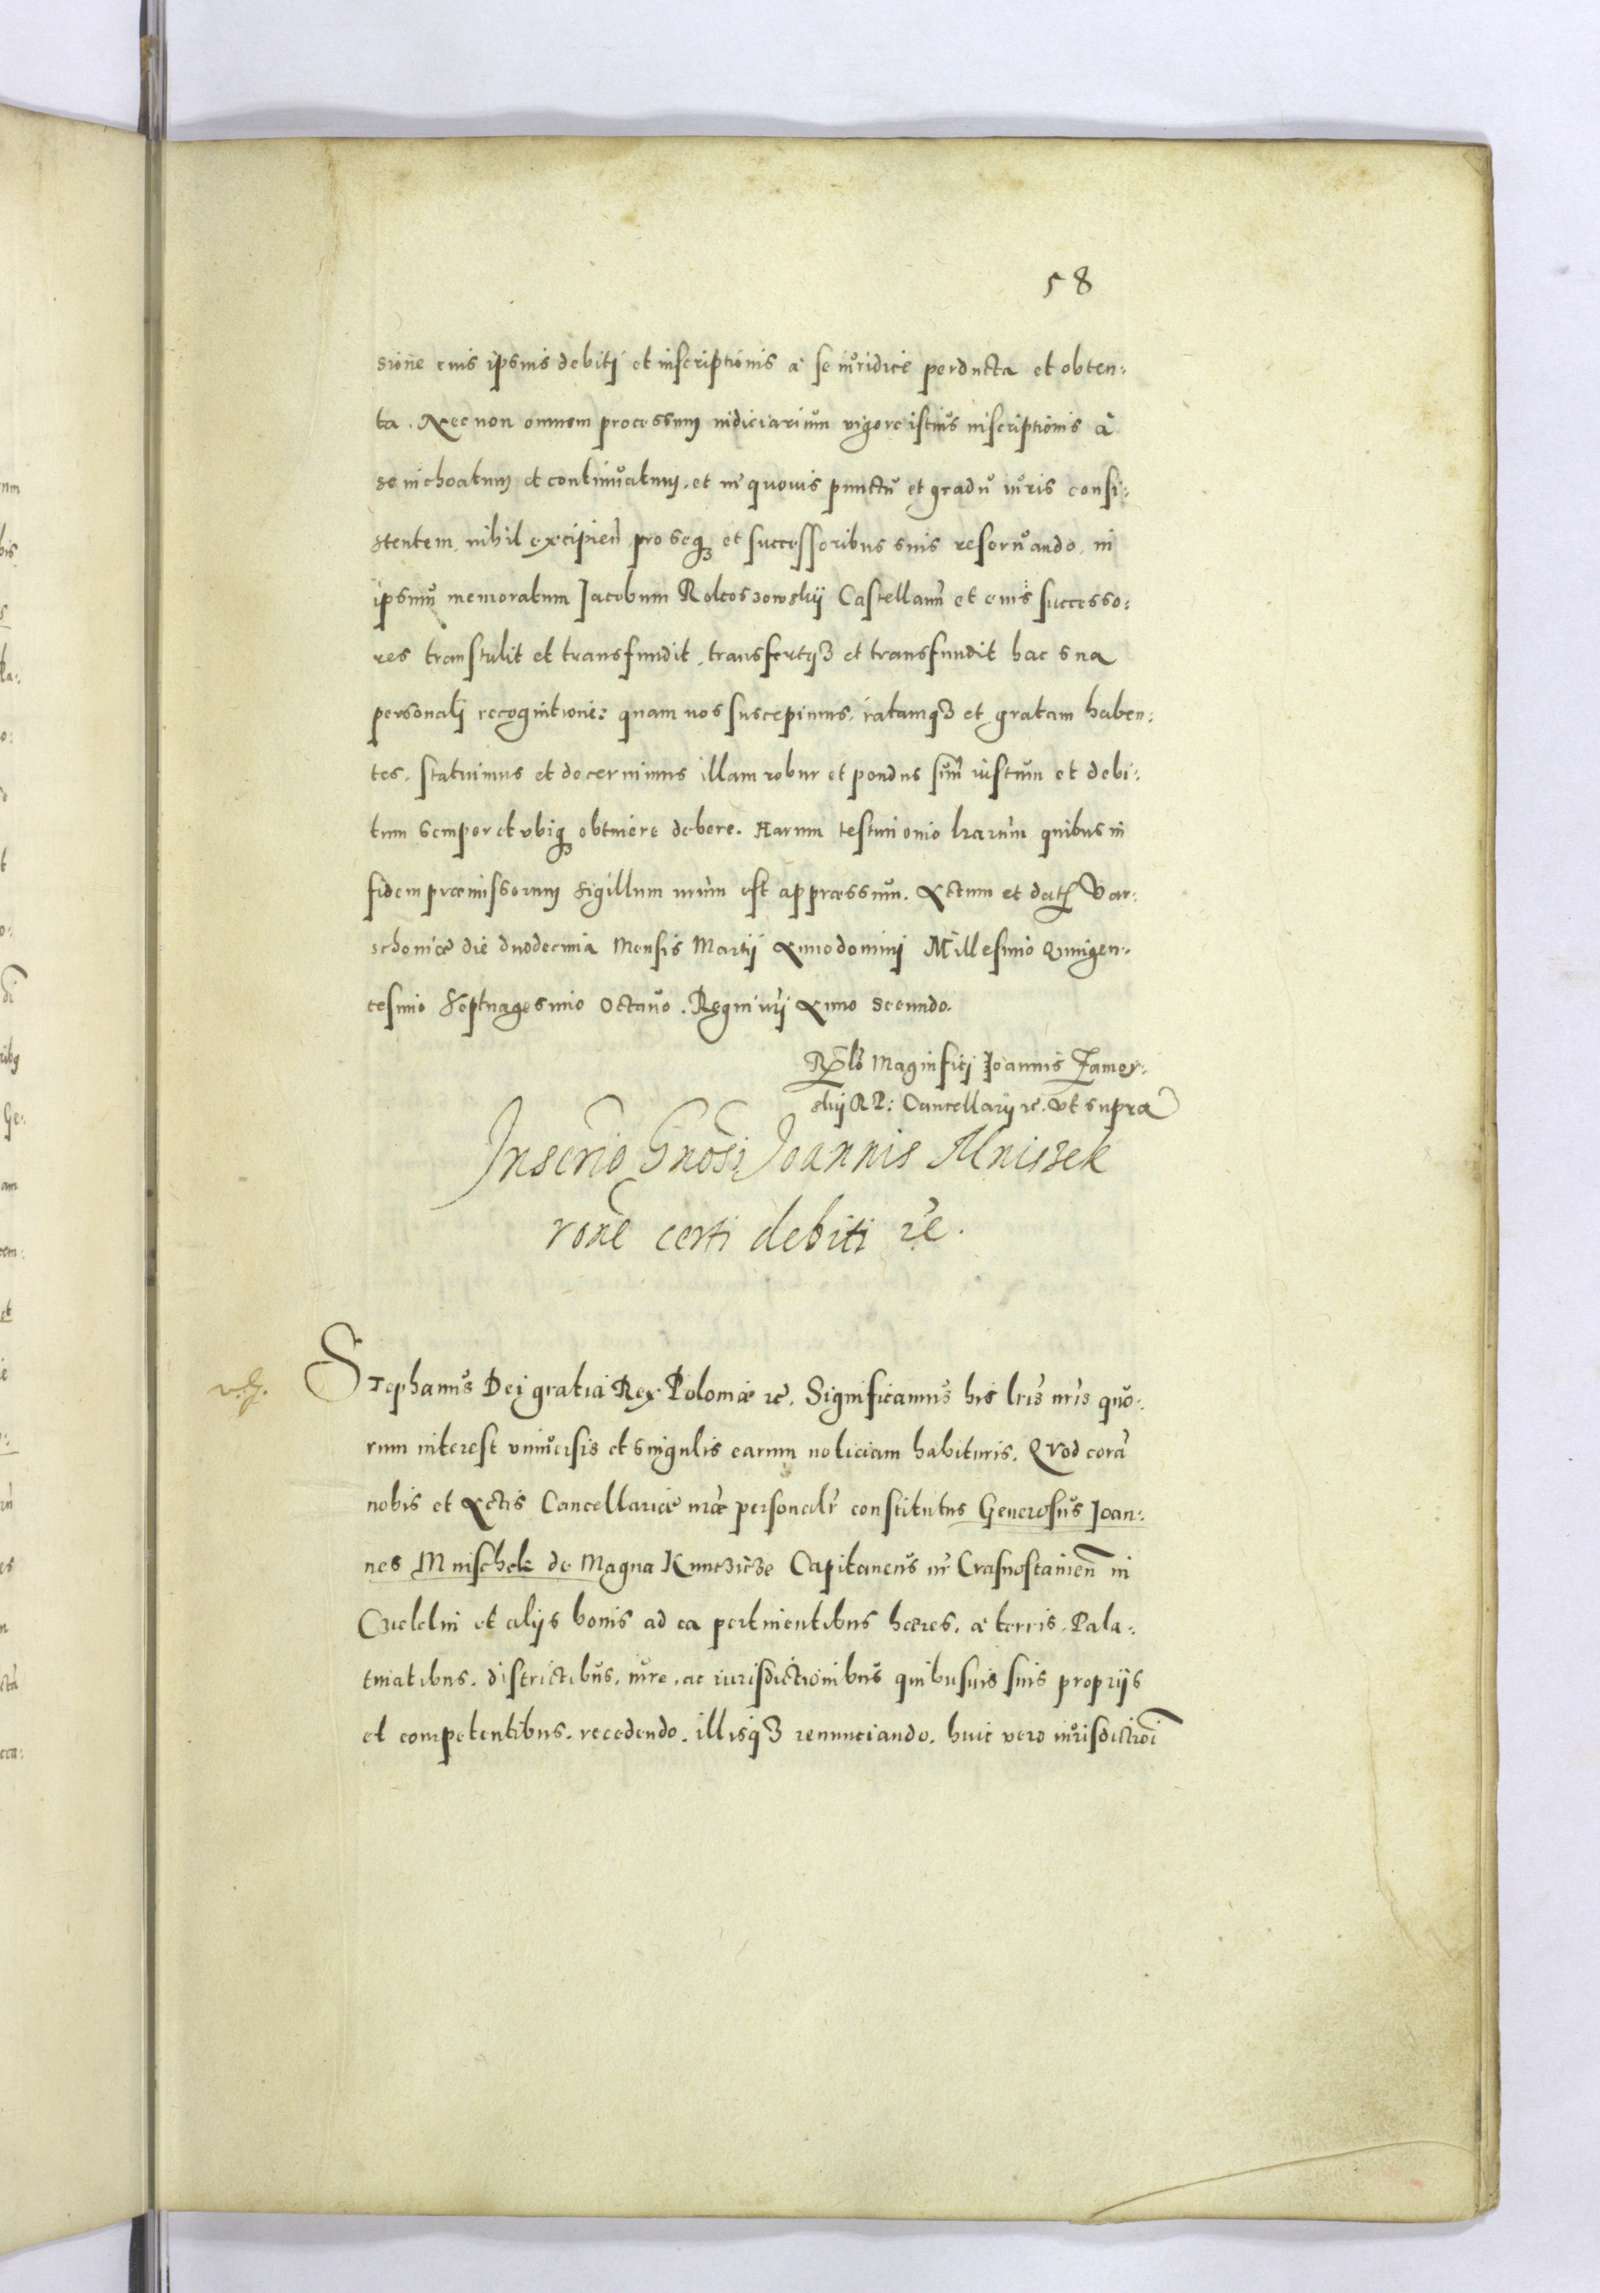 58
sione eius ipsius debitj et inscriptionis a se iuridice perducta et obten:
ta. Nec non omnem processum iudiciarium vigore istius inscriptionis à
se inchoatum et continuatum, et in quouis punctu et gradu iuris consi:
stentem, nihil excipien̄ pro seq₃ et successoribus suis reseruando, in
ipsum̄ memoratum Jacobum Rokossowskij Castellanū et eius successo:
res transtulit et transfundit, transfertq₃ et transfundit hac sua
personalj recognitione: quam nos suscepimus, ratamq₃ et gratam haben:
tes, statuimus et decernimus illam robur et pondus suū iustum et debi:
tum semper et vbiq₃ obtinere debere. Harum testimonio lrarum quibus in
fidem præmissorum sigillum nrūm est appressum. Actum et dat Var:
schouiæ die duodecima Mensis Martij Anno dominj Millesimo Quingen:
tesimo Septuagesimo Octauo. Regni nrj Anno secundo.
Rēlō Magnificj Joannis Zamoy:
skij R P: Cancellarij etc. vt supra
Inscrīō Gnōsī Joannis Mniszek
rōnē certi debiti etc.
Stephanus Dej gratia Rex Poloniæ etc. Significamus his lrīs nrīs quo:
rum interest vniuersis et singulis earum noticiam habituris. Quod corā
nobis et Actis Cancellariæ nrǣ personalr̄ constitutus Generosus Joan:
nes Mnischek de Magna Kunczicze Capitaneus nr̄ Crasnostauien̄ in
et alijs bonis ad ea pertinentibus hæres, a terris, Pala:
tinatibus, districtibus, iure, ac iurisdictionibus quibusuis suis proprijs
et competentibus, recedendo, illisq₃ renunciando, huic vero iurisdictiōi